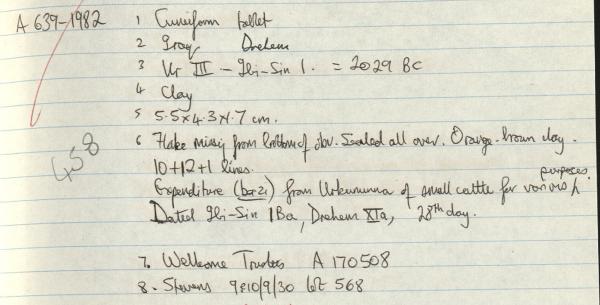 A 639-1982
1 Cuneiform tablet
2 Iraq Drehem
3 Ur III - Ibi-Sin 1. = 2029 BC
4 Clay
5 5.5x4.3x1.7 cm.
6 Flake missing from bottom of obv. Sealed all over. Orange-brown clay.
10+12+1 lines.
Expenditure (ba-zi) from Urkununna of small cattle for various purposes.
Dated Ibi-Sin 1Ba, Drehem XIa, 28th day.
458
7. Wellcome Trustees A 170508
8. Stevens 9&10/9/30 lot 568